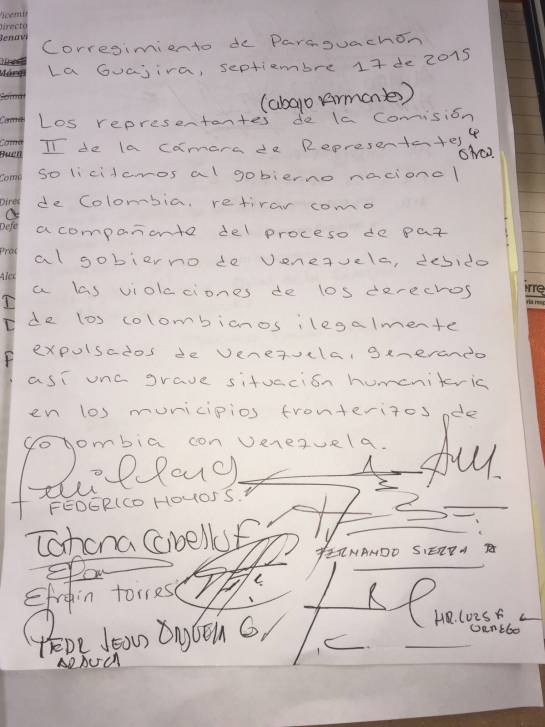 Corregimiento de Paraguachón
La Guajira, septiembre 17 de 2015
(abajo firmantes)
Los representantes de la Comisión
II de la Cámara de Representantes y
otros
solicitamos al gobierno nacional
de Colombia, retirar como
acompañante del proceso de paz
al gobierno de Venezuela, debido
a las violaciones de los derechos
de los colombianos ilegalmente
expulsados de Venezuela, generando
así una grave situación humanitaria
en los municipios fronterizos de
Colombia con Venezuela.
FEDERICO HOYOS S.
Tatiana Cabello F
FERNANDO SIERRA R
Efraín torres
HR. LUIS F
URREGO
PEDR JESUS ORJUELA G
ARAUCA